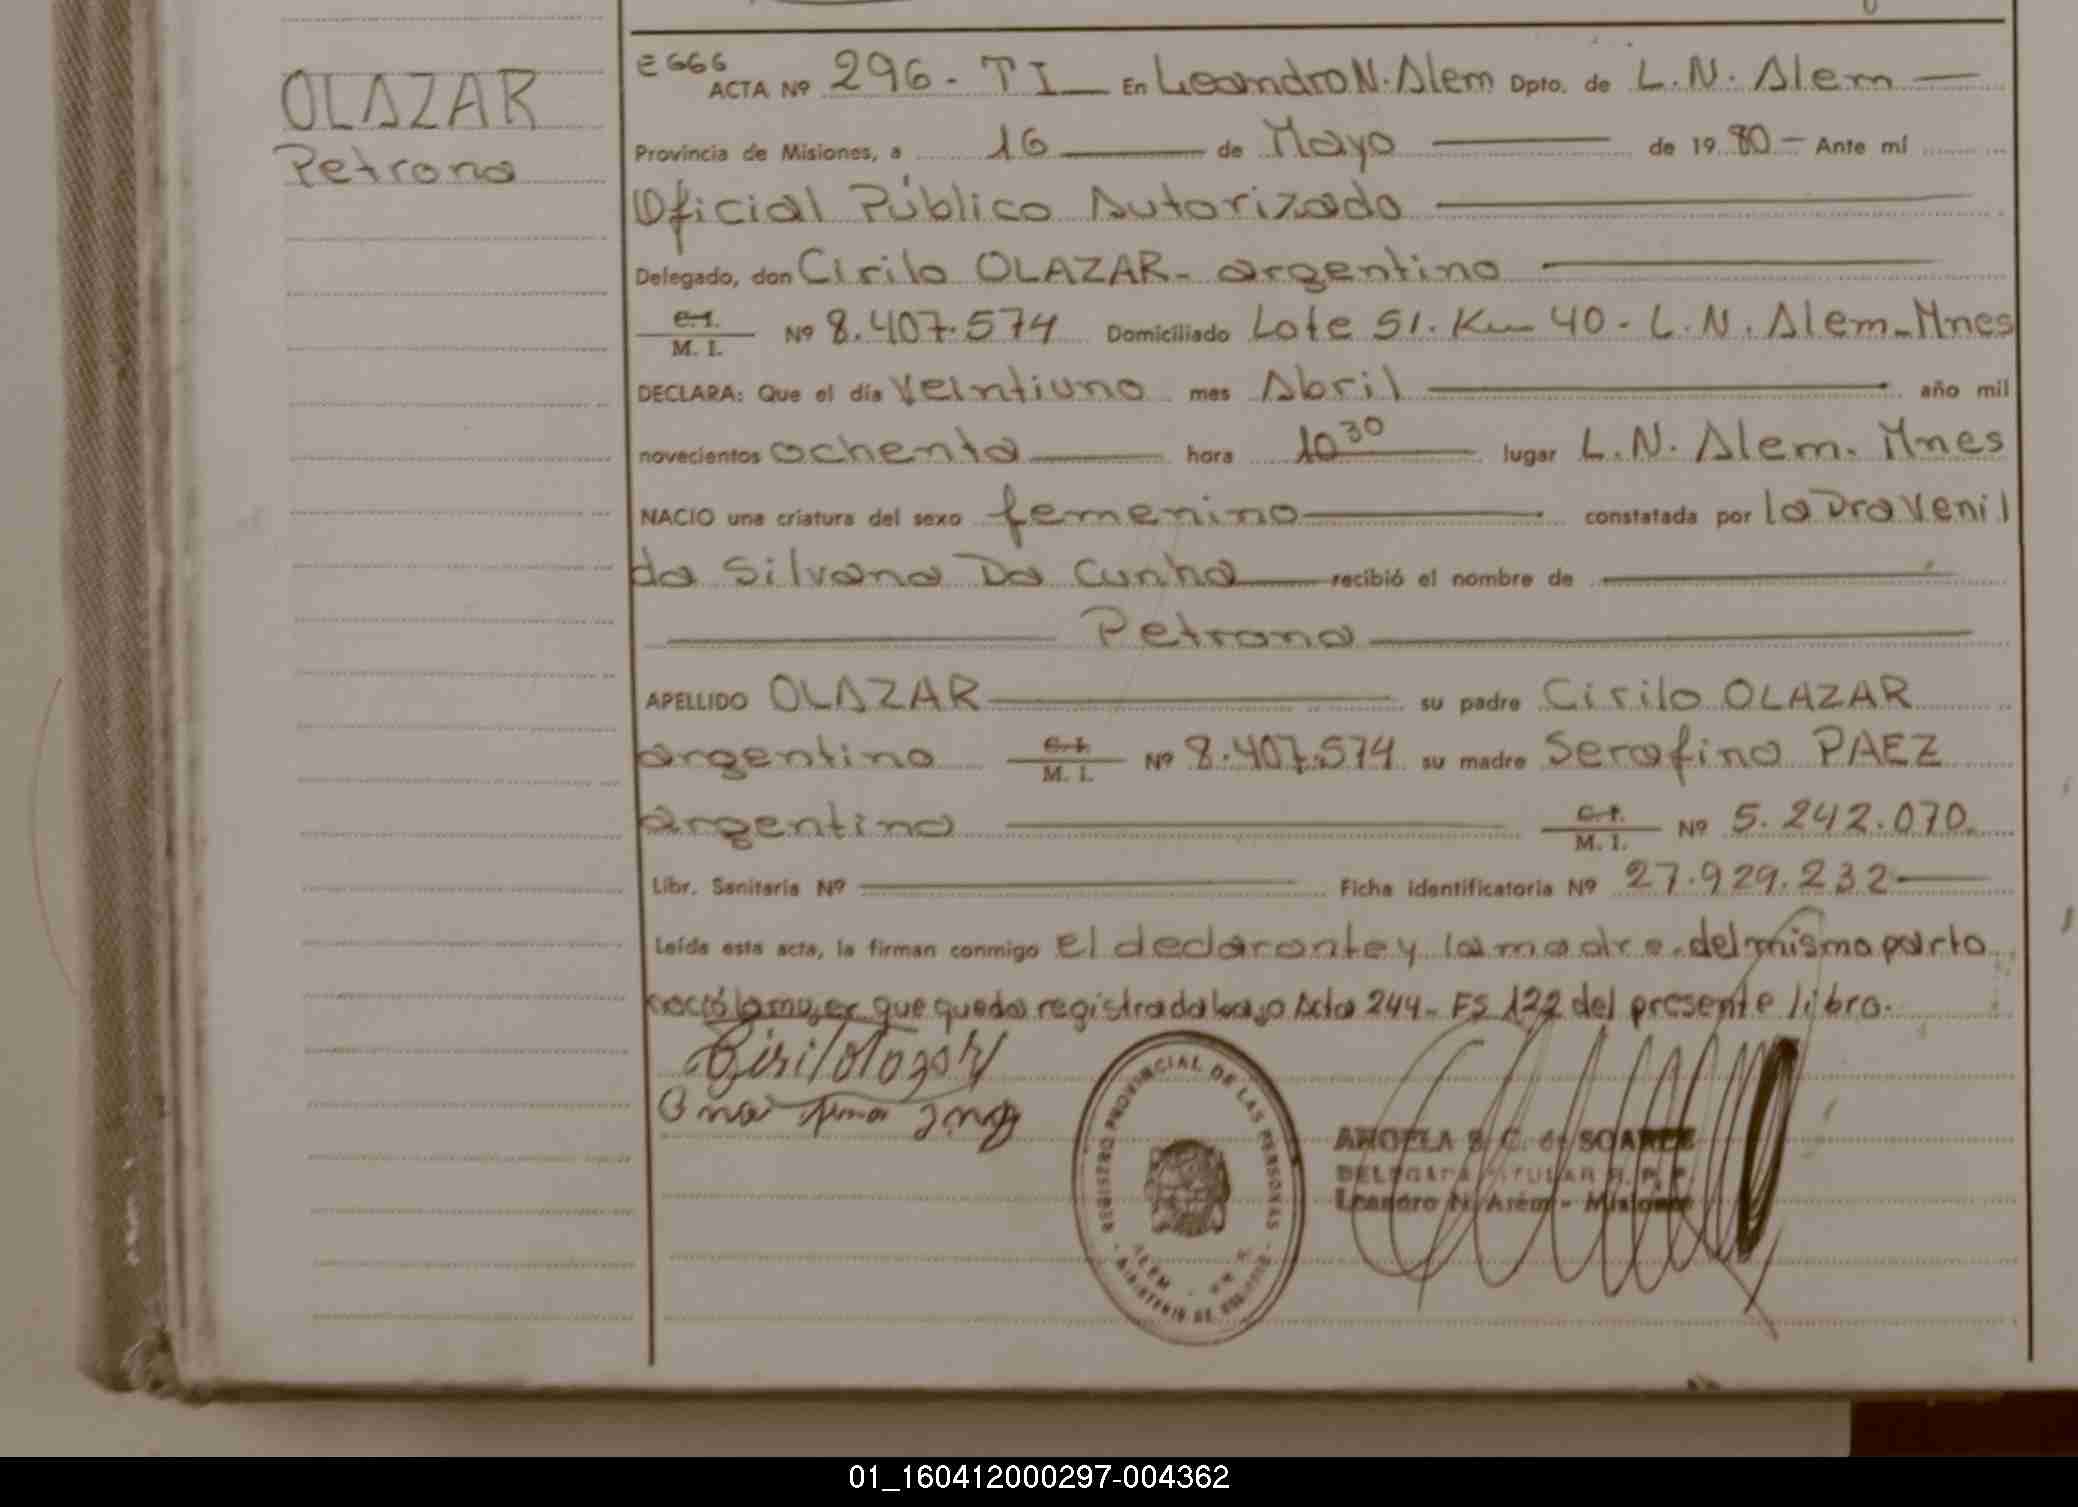 OLAZAR
Petrona
E 666
ACTA Nº 296 - T I En Leandro N. Alem Dpto. de L. N. Alem
Provincia de Misiones, a 16 de Mayo de 19 80 - Ante mí
Oficial Público Autorizado
Delegado, don Cirilo OLAZAR - argentino
C. I. / M. I. Nº 8.407.574 Domiciliado Lote 51. Km 40 - L. N. Alem - Mnes
DECLARA: Que el día Veintiuno mes Abril año mil
novecientos ochenta hora 10 30 lugar L. N. Alem. Mnes
NACIO una criatura del sexo femenino constatada por la Dra Venil
da Silvana Da Cunha recibió el nombre de
Petrona
APELLIDO OLAZAR su padre Cirilo OLAZAR
argentino C. I. / M. I. Nº 8.407.574 su madre Serafina PAEZ
argentina C. I. / M. I. Nº 5.242.070.
Libr. Sanitaria Nº Ficha identificatoria Nº 27.929.232
Leída esta acta, la firman conmigo el declarante y la madre. del mismo parto
nació la mujer que queda registrada bajo Acta 244 - Fs 122 del presente libro.
Cirilo Olazar
REGISTRO PROVINCIAL DE LAS PERSONAS
ALEM
MINISTERIO DE
ANGELA B. C. de SOAREZ
DELEGADA TITULAR R. P. P.
Leandro N. Alem - Misiones
01_160412000297-004362